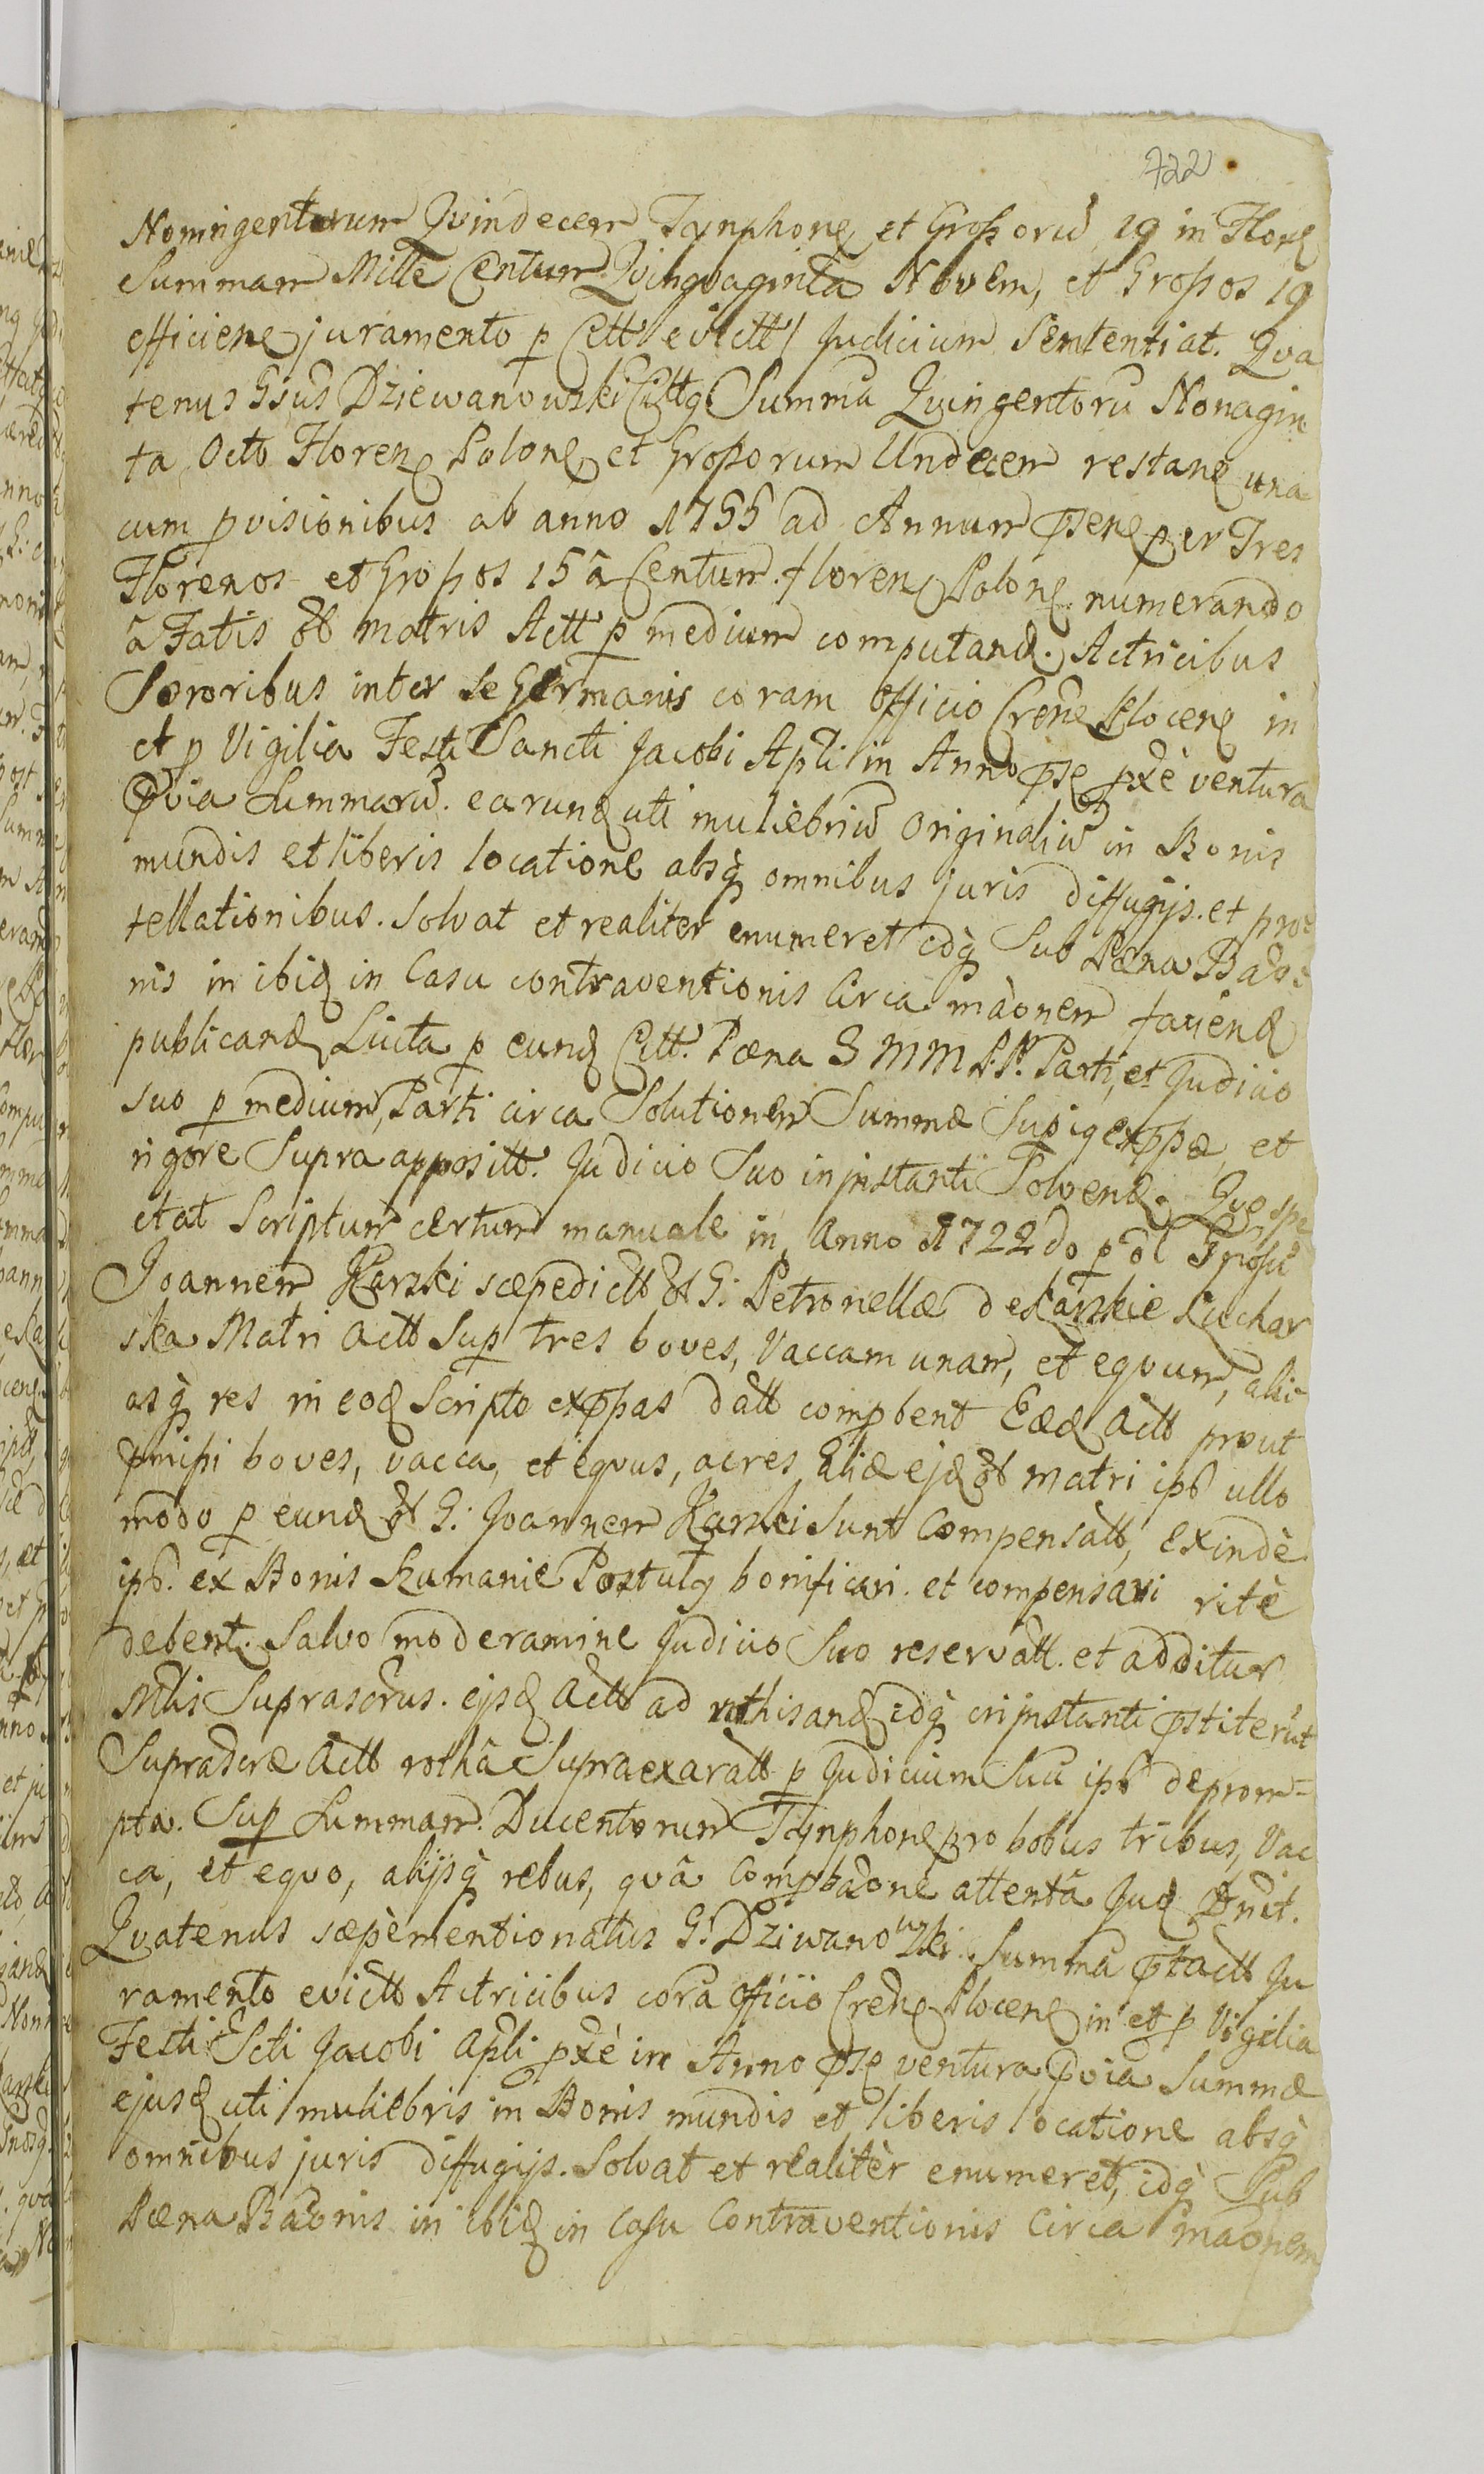 722
Noningentorum Qvindecem Tynphonꝫ et Grossorū 19 in Florꝫ
Summam Mille Centum Qvinqvaginta Novem, et Grossos 19
efficienꝫ juramento p Citt evictt / Judicium Sententiat. Qva
tenus Gsus Dziewanowski Cittꝫ Summā Qvingentorū Nonagin
ta Octo Florenꝫ Polonꝫ et Grossorum Undecem restanꝫ una
cum pvisionibus ab anno 1755 ad Annum psenꝫ per Tres
Florenos et Grossos 15 â Centum florenꝫ Polonꝫ numerando
â Fatis ol matris Actt p medium computandꝫ. Actricibus
Sororibus inter Se Germanis coram Officio Crenꝫ Plocenꝫ in
et p Vigilia Festi Sancti Jacobi Apli in Anno psꝫ pxè ventura
pvia Summarū earundꝫ uti muliebriū Originaliū in Bonis
mundis et liberis locatione absq̀ omnibus juris diffugijs et pro
tellationibus. Solvat et realiter enumeret idq̀ Sub Pæna Bado
nis in ibidꝫ in Casu contraventionis Circa mâonem faciendꝫ
publicandꝫ Luita p eundꝫ Citt. Pæna 3 MM P.P. Parti, et Judicio
suo p medium, Parti circa Solutionem Summæ Supiꝫ exppæ, et
rigore Supra appositt. Judicio Suo in instanti Solvendꝫ. Qvo spe
ctat Scriptum certum manuale in Anno 1722do p ol Gnosū
Joannem Karski sæpedictt ol G: Petronellæ de Karskie Kuchar
ska Matri Actt Sup tres boves, Vaccam unam, et eqvum, alic
asq̀ res in eodꝫ Scripto exppas datt compbent Eædꝫ Actt prout
pmissi boves, vacca, et eqvus, acres Aliæ ejdꝫ ol Matri ipś ullo
modo p eundꝫ ol G: Joannem Karski Sunt Compensatt, exindè
ipś. ex Bonis Kumanie Postulꝫ bonificari et compensari ritè
debent. Salvo moderamine Judicio Suo reservatt. et additur
Mtlis Suprascrus. ejsdꝫ Actt ad rothisandꝫ idq̀ in instanti pstiterūt
Supradcræ Actt rothâ Supraexaratt p Judicium Suū ipś deprom=
pta. Sup Summam Ducentorum Tynphonꝫ pro bobus tribus, Vac
ca, et eqvo, alijsq̀ rebus, qvâ Compbaone attentâ Judꝫ Dnit.
Qvatenus sæpèmentionatus G: Dziwanowski Summā ptactt Ju
ramento evictt Actricibus corā Officio Crenꝫ Plocenꝫ in et p Vigilia
Festi Scti Jacobi Apli pxè in Anno psꝫ ventura pvia Summæ
ejusdꝫ uti muliebris in Bonis mundis et liberis locatione absq̀
omnibus juris diffugijs. Solvat et realitèr enumeret, idq̀ Sub
Pæna Badonis in ibidꝫ in Casu Contraventionis Circa mâonem